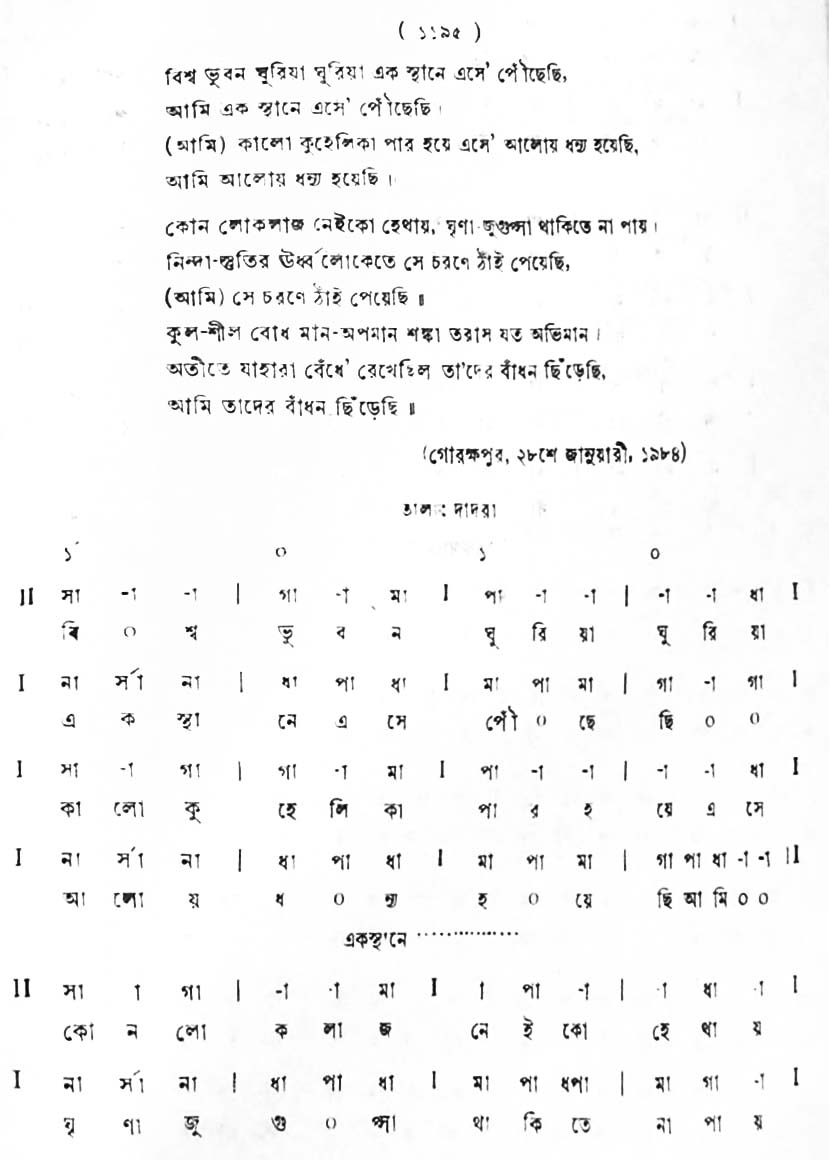 ( ১১৯৫ )
বিশ্ব ভুবন ঘুরিয়া ঘুরিয়া এক স্থানে এসে' পৌঁছেছি,
আমি এক স্থানে এসে' পৌঁছেছি।
(আমি) কালো কুহেলিকা পার হয়ে এসে' আলোয় ধন্য হয়েছি,
আমি আলোয় ধন্য হয়েছি।
কোন লোকলাজ নেইকো হেথায়, ঘৃণা জুগুপ্সা থাকিতে না পায়।
নিন্দা-স্তুতির ঊর্ধ্বলোকেতে সে চরণে ঠাঁই পেয়েছি,
(আমি) সে চরণে ঠাঁই পেয়েছি॥
কুল-শীল বোধ মান-অপমান শঙ্কা তরাস যত অভিমান।
অতীতে যাহারা বেঁধে' রেখেছিল তা'দের বাঁধন ছিঁড়েছি,
আমি তাদের বাঁধন ছিঁড়েছি॥
(গোরক্ষপুর, ২৮শে জানুয়ারী, ১৯৮৪)
তাল : দাদরা
১´ ০ ১´ ০
II সা -া -া | গা -া মা I পা -া -া | -া -া ধা I
বি ০ শ্ব ভু ব ন ঘু রি য়া ঘু রি য়া
I না র্সা না | ধা পা ধা I মা পা মা | গা -া গা I
এ ক স্থা নে এ সে পৌঁ ০ ছে ছি ০ ০
I সা -া গা | গা -া মা I পা -া -া | -া -া ধা I
কা লো কু হে লি কা পা র হ য়ে এ সে
I না র্সা না | ধা পা ধা I মা পা মা | গা পা ধা -া -া II
আ লো য় ধ ০ ন্য হ ০ য়ে ছি আ মি ০ ০
একস্থানে ···············
II সা া গা | -া -া মা I া পা -া | -া ধা -া I
কো ন লো ক লা জ নে ই কো হে থা য়
I না র্সা না | ধা পা ধা I মা পা ধপা | মা গা -া I
ঘৃ ণা জু গু ০ প্সা থা কি তে না পা য়